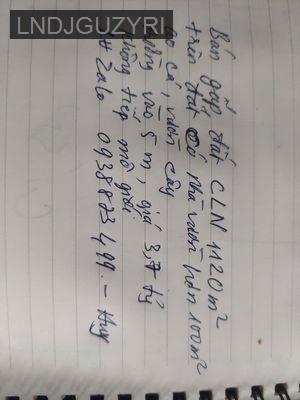 LNDJGUZYRI
Bán gấp đất CLN 1120m²
trên đất có nhà vườn hơn 100m²
ao cá, vườn cây
đường vào 5m, giá 3,7 tỷ
không tiếp môi giới
Zalo 0938823499. - Huy